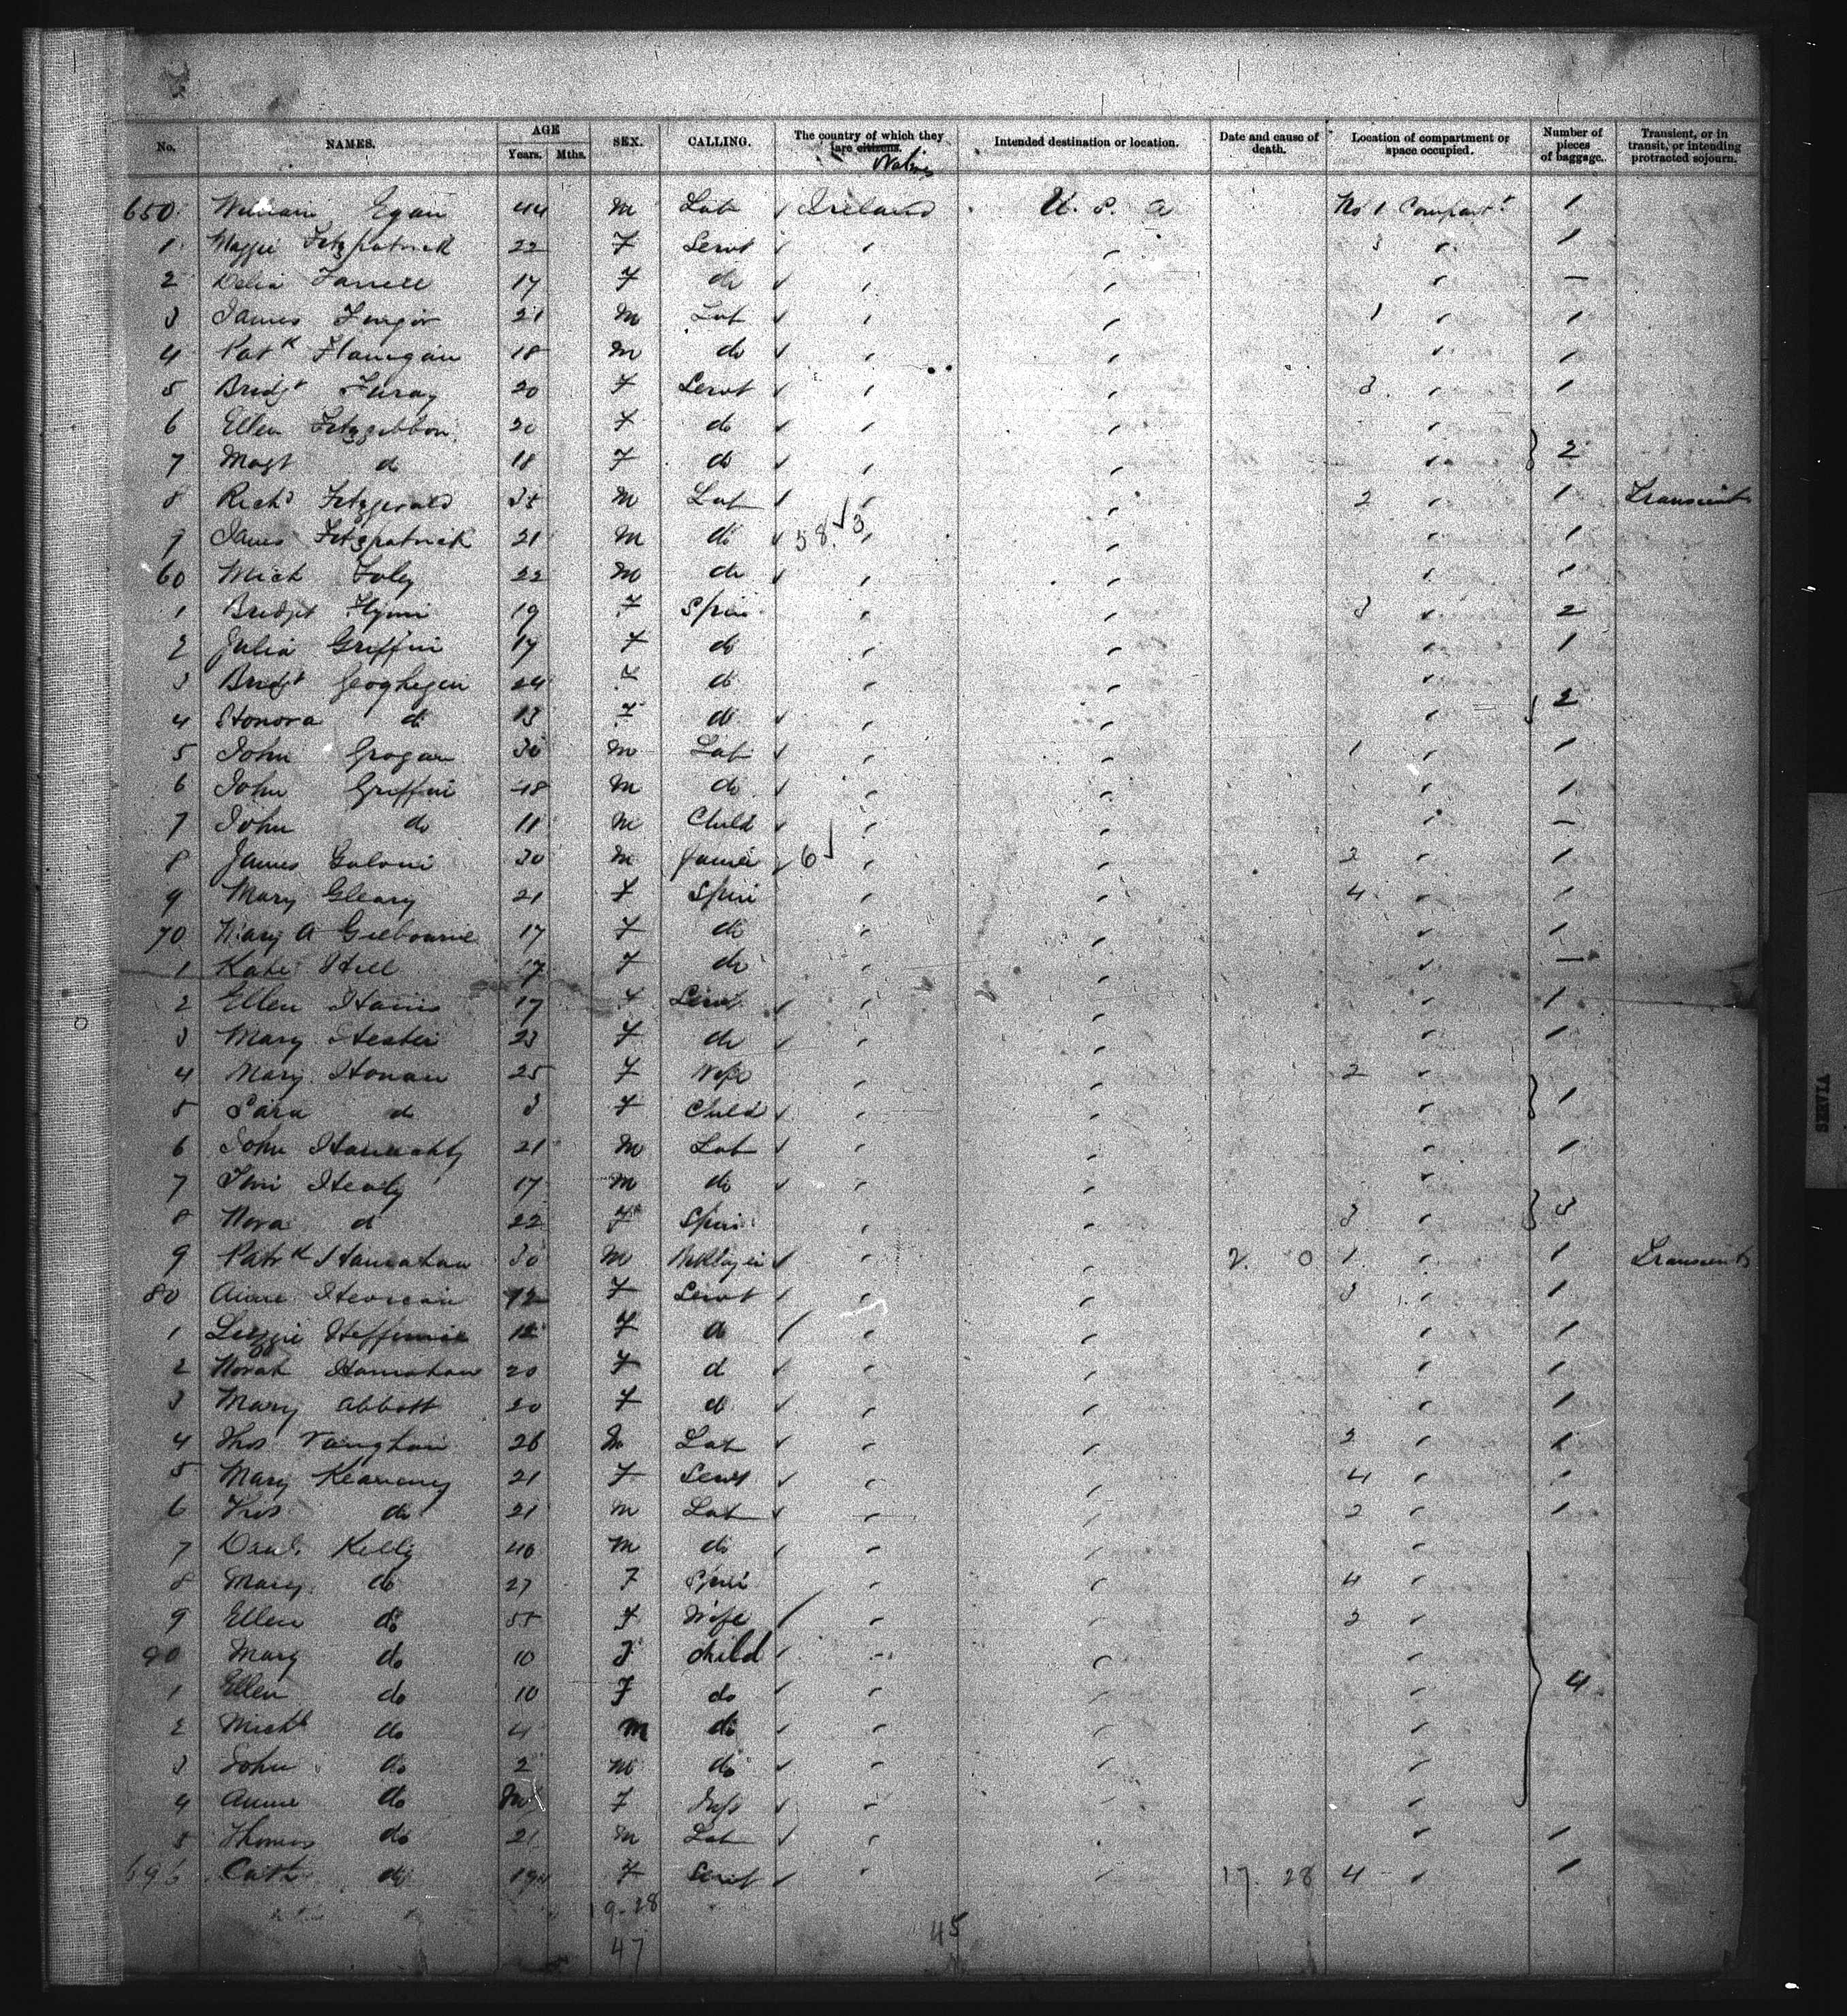 No. NAMES. AGE Years. Mths. SEX. CALLING. The country of which they are citizens. Natives Intended destination or location. Date and cause of death. Location of compartment or space occupied. Number of pieces of baggage. Transient, or in transit, or intending protracted sojourn.
650 William Egan 44 M Lab Ireland U. S. A No 1 Compart't 1
1 Maggie Fitzpatrick 22 F Servt " " 3 " 1
2 Delia Farrell 17 F do " " " —
3 James 21 M Lab " " 1 " 1
4 Patk Flanegan 18 M do " " " 1
5 Bridgt Furay 20 F Servt " " 3 " 1
6 Ellen Fitzgibbon 20 F do " " "
7 Magt do 18 F do " " " 2
8 Richd Fitzgerald 35 M Lab " " 2 " 1 Transient
9 James Fitzpatrick 21 M do 58 3 " " " 1
60 Mich Foley 22 M do " " " 1
1 Bridget Flynn 19 F Spin " " 3 " 2
2 Julia Griffin 17 F do " " " 1
3 Bridgt Geoghegan 24 F do " " "
4 Honora do 13 F do " " " 2
5 John Grogan 30 M Lab " " 1 " 1
6 John Griffin 48 M do " " " 1
7 John do 11 M Child " " " —
8 James 30 M 6 " " 2 " 1
9 Mary Gleary 21 F Spin " " 4 " 1
70 Mary A Gilbourne 17 F do " " " 1
1 Kate Hill 17 F do " " " —
2 Ellen 17 F Servt " " " 1
3 Mary Hester 23 F do " " " 1
4 Mary Honan 25 F Wife " " 2 "
5 Sara do 3 F Child " " " 1
6 John 21 M Lab " " " 1
7 Tim Healy 17 M do " " "
8 Nora do 22 F Spin " " 3 " 3
9 Patrk Hanrahan 30 M " " 2 0 1 " 1 Transient
80 Annie 12 F Servt " " 3 " 1
1 Lizzie 18 F do " " " 1
2 Norah Hanrahan 20 F do " " " 1
3 Mary Abbott 20 F do " " " 1
4 Thos Vaughan 26 M Lab " " 2 " 1
5 Mary Kearney 21 F Servt " " 4 " 1
6 Thos do 21 M Lab " " 2 " 1
7 Danl Kelly 40 M do " " "
8 Mary do 27 F Spin " " 4 "
9 Ellen do 55 F Wife " " 2 "
90 Mary do 10 F child " " "
1 Ellen do 10 F do " " " 4
2 Michl do 4 M do " " "
3 John do 2 M do " " "
4 Annie do F Inft " " "
5 Thomas do 21 M Lab " " " 1
696 Cath do 19 F Servt " " 17. 28 4 " 1
19-28
47 45
SERVIA